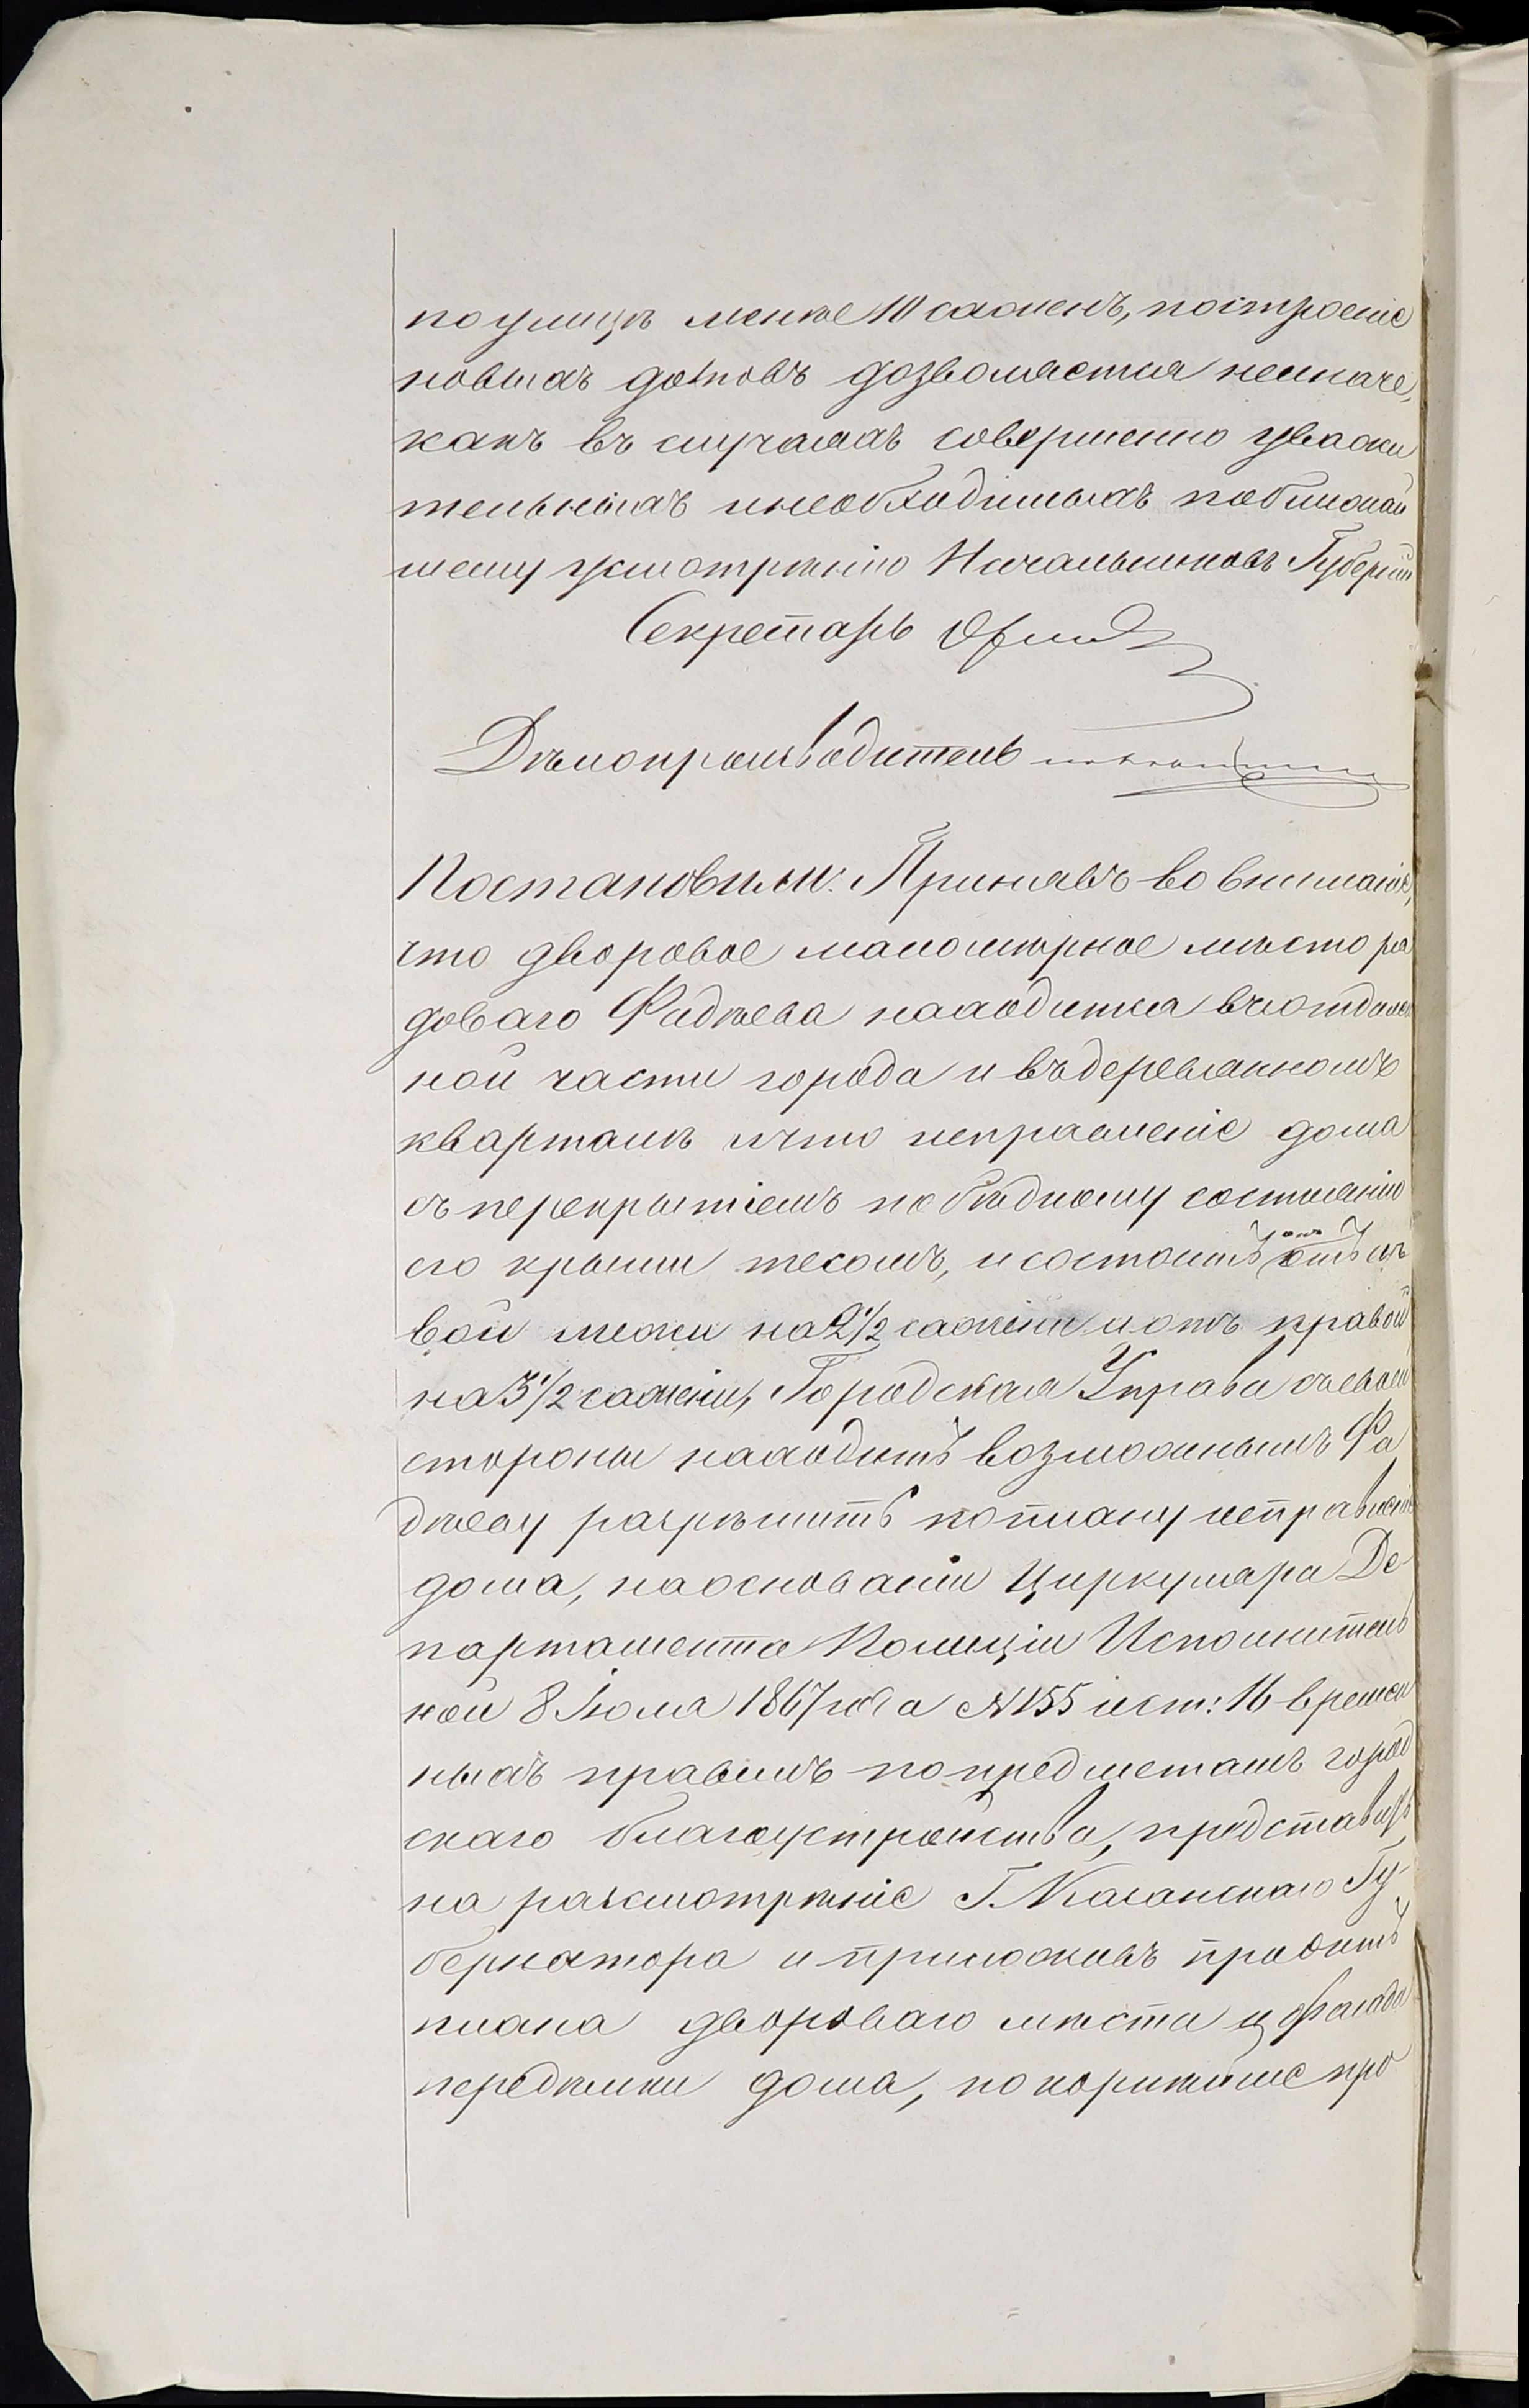 по улицѣ менѣе 10 саженъ, построеніе
новыхъ домовъ дозволяется неиначе,
какъ въ случаяхъ совершенно уважи
тельныхъ и необходимыхъ по ближай
шему усмотрѣнію Начальниковъ Губерніи
Секретарь
Дѣлопроизводитель
Постановили: Принявъ во вниманіе,
что дворовое маломѣрное мѣсто ря
доваго Фадѣева находится въ отдален
ной части города и въ деревянномъ
кварталѣ и что исправленіе дома
съ перекрытіемъ по бѣдному состоянію
его крыши тесомъ, и состоитъ онъ отъ лѣ
вой межи на 2 1/2 сажени и отъ правой
на 3 1/2 сажени, Городская Управа съ своей
стороны находитъ возможнымъ Фа
дѣеву разрѣшить по плану исправленіе
дома, на основаніи Циркуляра Де
партамента Полиціи Исполнитель
ной 8 Іюля 1867 года № 155 и ст: 16 времен
ныхъ правилъ по предметамъ город
скаго благоустройства, представить
на разсмотрѣніе Г. Казанскаго Гу-
бернатора и приложивъ проэктъ
плана двороваго мѣста и фасада
передѣлки дома, покорнѣйше про